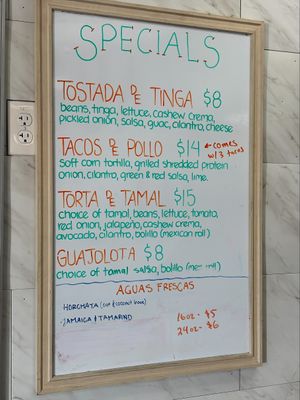 SPECIALS
TOSTADA DE TINGA $8
beans, tinga, lettuce, cashew crema,
pickled onion, salsa, guac, cilantro, cheese
TACOS DE POLLO $14 ← comes
w/ 3 tacos
soft corn tortilla, grilled shredded protein
onion, cilantro, green & red salsa, lime.
TORTA DE TAMAL $15
choice of tamal, beans, lettuce, tomato,
red onion, jalapeño, cashew crema,
avocado, cilantro, bolillo (mexican roll)
GUAJOLOTA $8
choice of tamal salsa, bolillo (mex roll)
AGUAS FRESCAS
HORCHATA (oat & coconut base)
JAMAICA & TAMARIND
16oz - $5
24oz - $6